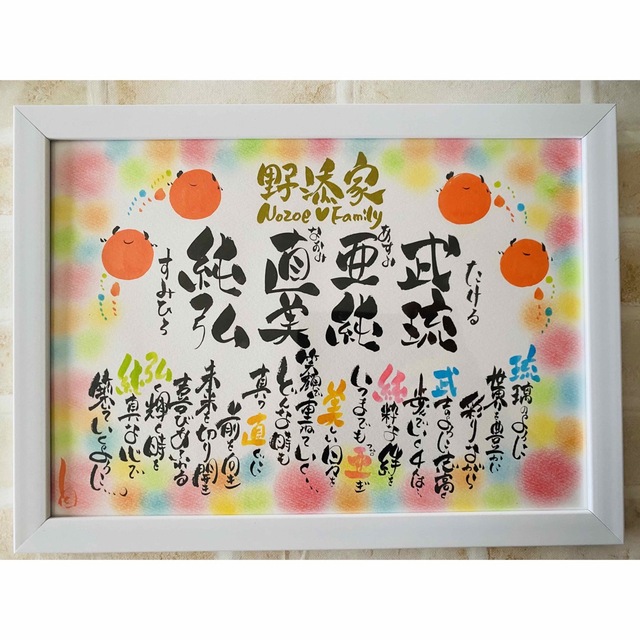 野添家
Nozoe♥Family
武琉
たける
亜純
あすみ
直美
なおみ
純弘
すみひろ
琉璃のように
世界を豊かに
彩りながら
武
歩んでいく4人は、
純粋な絆を
いつまでも亜
つなぎ
美しい日々を
笑顔で重ねていく…
どんな時も
真っ直ぐに
前を向き
未来を切り開き
喜びあふれる
弘く輝く時を
純真な心で
築いていくように…